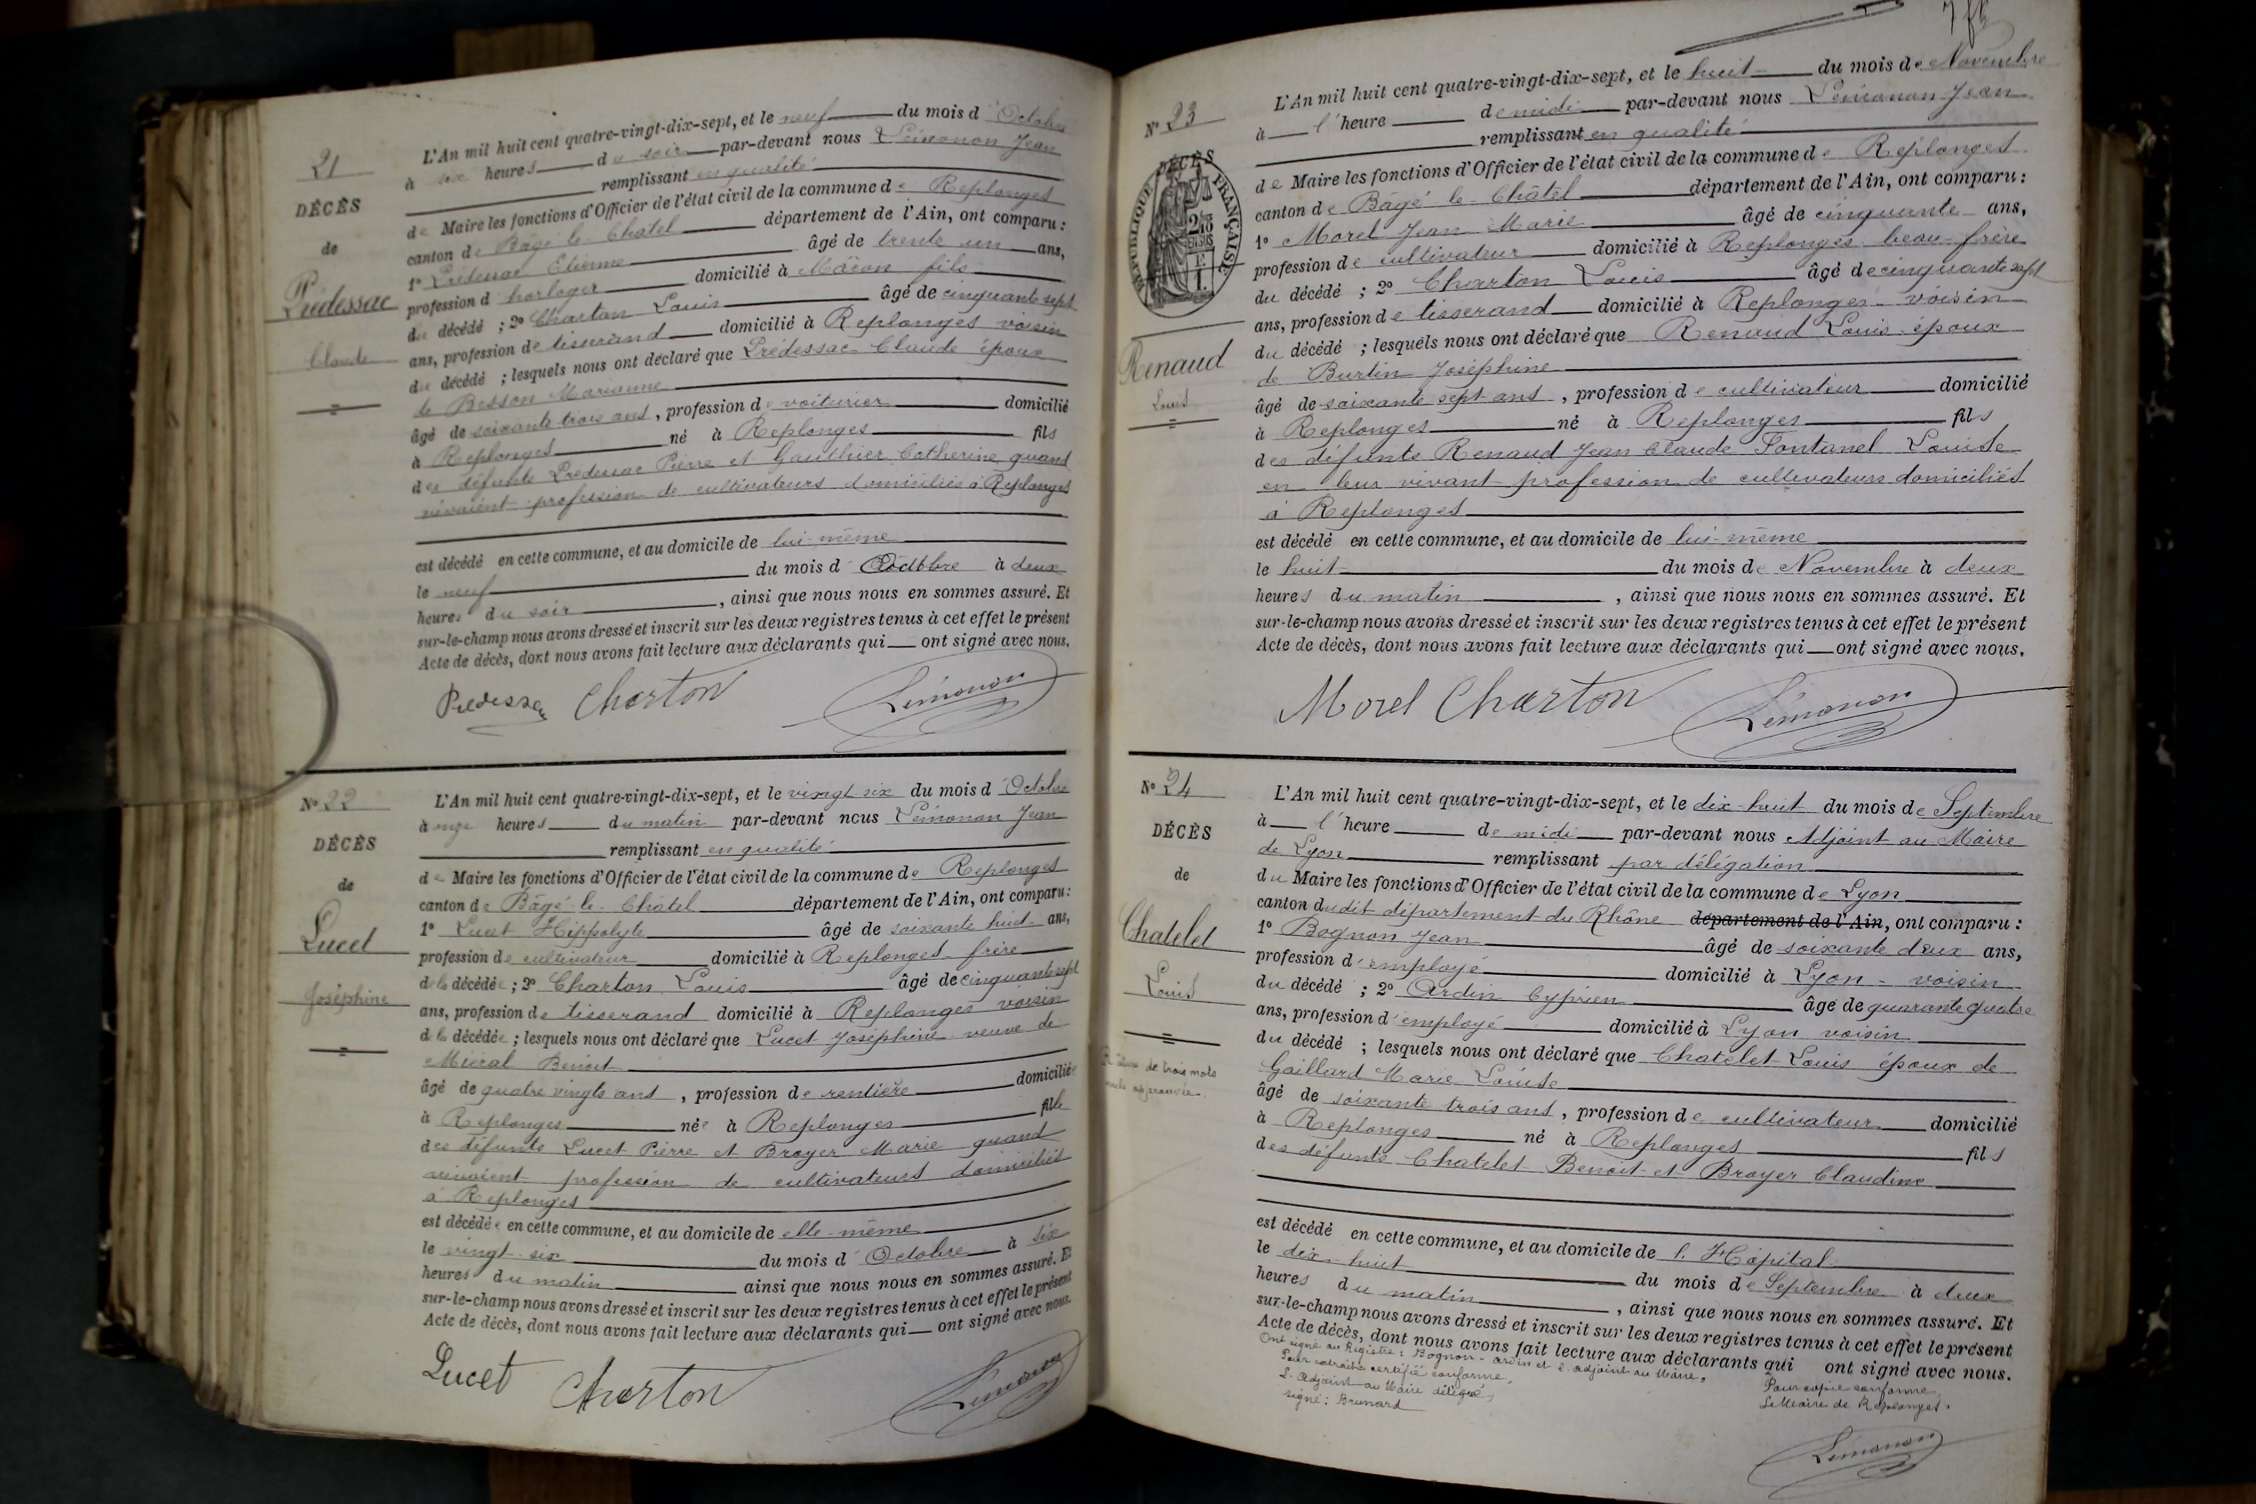 21
DÉCÈS
de
Prédessac
Claude
L'An mil huit cent quatre-vingt-dix-sept, et le neuf du mois d'Octobre
à six heures du soir par-devant nous Lémonon Jean
remplissant en qualité
de Maire les fonctions d'Officier de l'état civil de la commune de Replonges
canton de Bâgé-le-Châtel département de l'Ain, ont comparu :
1° Prédessac Etienne âgé de trente un ans,
profession d'horloger domicilié à Mâcon fils
du décédé ; 2° Charton Louis âgé de cinquante sept
ans, profession de tisserand domicilié à Replonges voisin
du décédé ; lesquels nous ont déclaré que Prédessac Claude époux
de Besson Marianne
âgé de soixante trois ans, profession de voiturier domicilié
à Replonges né à Replonges fils
des défunts Prédessac Pierre et Gauthier Catherine quand
vivaient profession de cultivateurs domiciliés à Replonges
est décédé en cette commune, et au domicile de lui-même
le neuf du mois d'Octobre à deux
heures du soir, ainsi que nous nous en sommes assuré. Et
sur-le-champ nous avons dressé et inscrit sur les deux registres tenus à cet effet le présent
Acte de décès, dont nous avons fait lecture aux déclarants qui ont signé avec nous.
Charton Lémonon
N° 22
DÉCÈS
de
Lucet
Joséphine
L'An mil huit cent quatre-vingt-dix-sept, et le vingt six du mois d'Octobre
à onze heures du matin par-devant nous Lémonon Jean
remplissant en qualité
de Maire les fonctions d'Officier de l'état civil de la commune de Replonges
canton de Bâgé-le-Châtel département de l'Ain, ont comparu :
1° Lucet Hippolyte âgé de soixante huit ans,
profession de cultivateur domicilié à Replonges frère
de la décédée ; 2° Charton Louis âgé de cinquante sept
ans, profession de tisserand domicilié à Replonges voisin
de la décédée ; lesquels nous ont déclaré que Lucet Joséphine veuve de
Benoit
âgé de quatre vingts ans, profession de rentière domicilié
à Replonges née à Replonges fille
des défunts Lucet Pierre et Broyer Marie quand
vivaient profession de cultivateurs domiciliés
à Replonges
est décédée en cette commune, et au domicile de elle-même
le vingt-six du mois d'Octobre à six
heures du matin ainsi que nous nous en sommes assuré. Et
sur-le-champ nous avons dressé et inscrit sur les deux registres tenus à cet effet le présent
Acte de décès, dont nous avons fait lecture aux déclarants qui ont signé avec nous.
Lucet Charton Lémonon
N° 23
DÉCÈS
RÉPUBLIQUE FRANÇAISE
Renaud
Louis
L'An mil huit cent quatre-vingt-dix-sept, et le huit du mois de Novembre
à l'heure de midi par-devant nous Lémonon Jean
remplissant en qualité
de Maire les fonctions d'Officier de l'état civil de la commune de Replonges
canton de Bâgé-le-Châtel département de l'Ain, ont comparu :
1° Morel Jean Marie âgé de cinquante ans,
profession de cultivateur domicilié à Replonges beau-frère
du décédé ; 2° Charton Louis âgé de cinquante sept
ans, profession de tisserand domicilié à Replonges voisin
du décédé ; lesquels nous ont déclaré que Renaud Louis époux
de Burtin Joséphine
âgé de soixante sept ans, profession de cultivateur domicilié
à Replonges né à Replonges fils
des défunts Renaud Jean Claude Fontanel Louise
en leur vivant profession de cultivateurs domiciliés
à Replonges
est décédé en cette commune, et au domicile de lui-même
le huit du mois de Novembre à deux
heures du matin, ainsi que nous nous en sommes assuré. Et
sur-le-champ nous avons dressé et inscrit sur les deux registres tenus à cet effet le présent
Acte de décès, dont nous avons fait lecture aux déclarants qui ont signé avec nous.
Morel Charton Lémonon
N° 24
DÉCÈS
de
Chatelet
Louis
de trois mots
approuvée.
L'An mil huit cent quatre-vingt-dix-sept, et le dix-huit du mois de Septembre
à l'heure de midi par-devant nous Adjoint au Maire
de Lyon remplissant par délégation
du Maire les fonctions d'Officier de l'état civil de la commune de Lyon
canton dudit département du Rhône département de l'Ain, ont comparu :
1° Bognon Jean âgé de soixante deux ans,
profession d'employé domicilié à Lyon - voisin
du décédé ; 2° Ardin Cyprien âgé de quarante quatre
ans, profession d'employé domicilié à Lyon voisin
du décédé ; lesquels nous ont déclaré que Chatelet Louis époux de
Gaillard Marie Louise
âgé de soixante trois ans, profession de cultivateur domicilié
à Replonges né à Replonges fils
des défunts Chatelet Benoit et Broyer Claudine
est décédé en cette commune, et au domicile de l'Hôpital
le dix huit du mois de Septembre à deux
heures du matin, ainsi que nous nous en sommes assuré. Et
sur-le-champ nous avons dressé et inscrit sur les deux registres tenus à cet effet le présent
Acte de décès, dont nous avons fait lecture aux déclarants qui ont signé avec nous.
Ont signé au Registre : Bognon - Ardin et l'adjoint au Maire,
Pour extrait certifié conforme,
L'Adjoint au Maire délégué,
signé : Brunard
Pour copie conforme
Le Maire de Replonges.
Lémonon